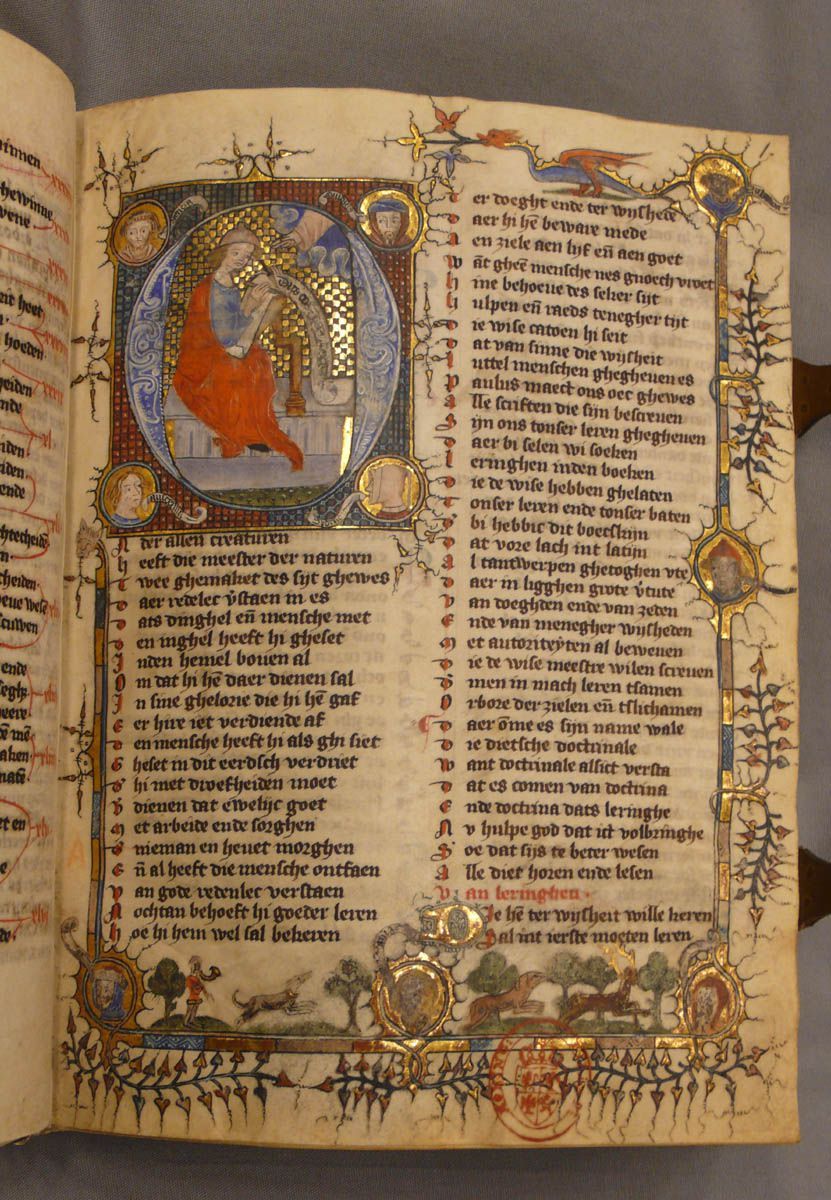 heet
hoeden
ende
ende
ende
Nder allen creaturen
heeft die meester der naturen
Twee ghemaket des sijt ghewes
Daer redelec v̄staen in es
Dats dinghel en̄ mensche met
Den inghel heeft hi gheset
Inden hemel bouen al
Om dat hi hē daer dienen sal
In sine ghelorie die hi hē gaf
Eer hire iet verdiende af
Den mensche heeft hi als ghi siet
Gheset in dit eerdsch verdriet
Dhi met droefheiden moet
V̄dienen dat ewelijc goet
Met arbeide ende sorghen
Nieman en heuet morghen
En̄ al heeft die mensche ontfaen
Van gode redenlec verstaen
Nochtan behoeft hi goeder leren
Hoe hi hem wel sal bekeren
Ter doeght ende ter wijshede
Daer hi hē beware mede
Aen ziele aen lijf en̄ aen goet
Wāt gheē mensche nes gnoech vroet
Hine behoeue des seker sijt
Hulpen en̄ raeds tenegher tijt
Die wise catoen hi seit
Dat van sinne die wijsheit
Luttel menschen ghegheuen es
Paulus maect ons oec ghewes
Alle scriften die sijn bescreuen
Sijn ons tonser leren ghegheuen
Daer bi selen wi soeken
Leringhen inden boeken
Die de wise hebben ghelaten
Tonser leren ende tonser baten
Bi hebbic dit boecskijn
Dat vore lach int latijn
Al tantwerpen ghetoghen vte
Daer in ligghen grote v̄tute
Van doeghden ende van zeden
Ende van menegher wijsheden
Met autoriteyten al beweuen
Die de wise meestre wilen screuen
Dmen in mach leren tsamen
Orbore der zielen en̄ tslichamen
Daer ōme es sijn name wale
Die dietsche doctrinale
Want doctrinale alsict versta
Dat es comen van doctrina
Ende doctrina dats leringhe
Nv hulpe god dat ict volbringhe
Soe dat sijs te beter wesen
Alle diet horen ende lesen
Van leringhen
Die hē ter wijsheit wille keren
Sal int ierste moeten leren